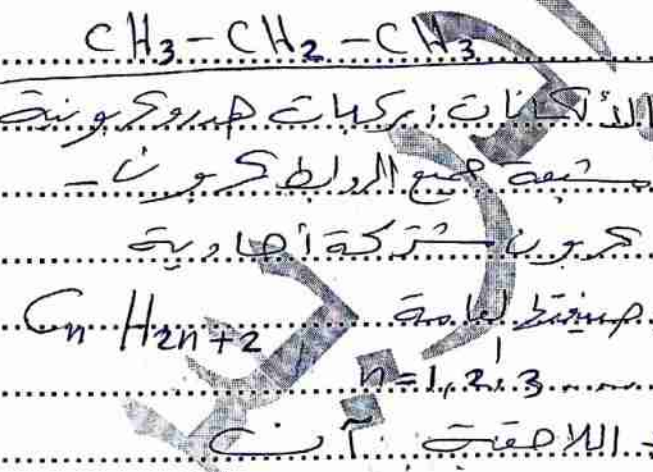 CH3 - CH2 - CH3
الألكانات: مركبات هيدروكربونية
مشبعة جميع الروابط كربون -
كربون مشتركة أحادية
صيغتها العامة CnH2n+2
n = 1, 2, 3 ....
اللاحقة: آن